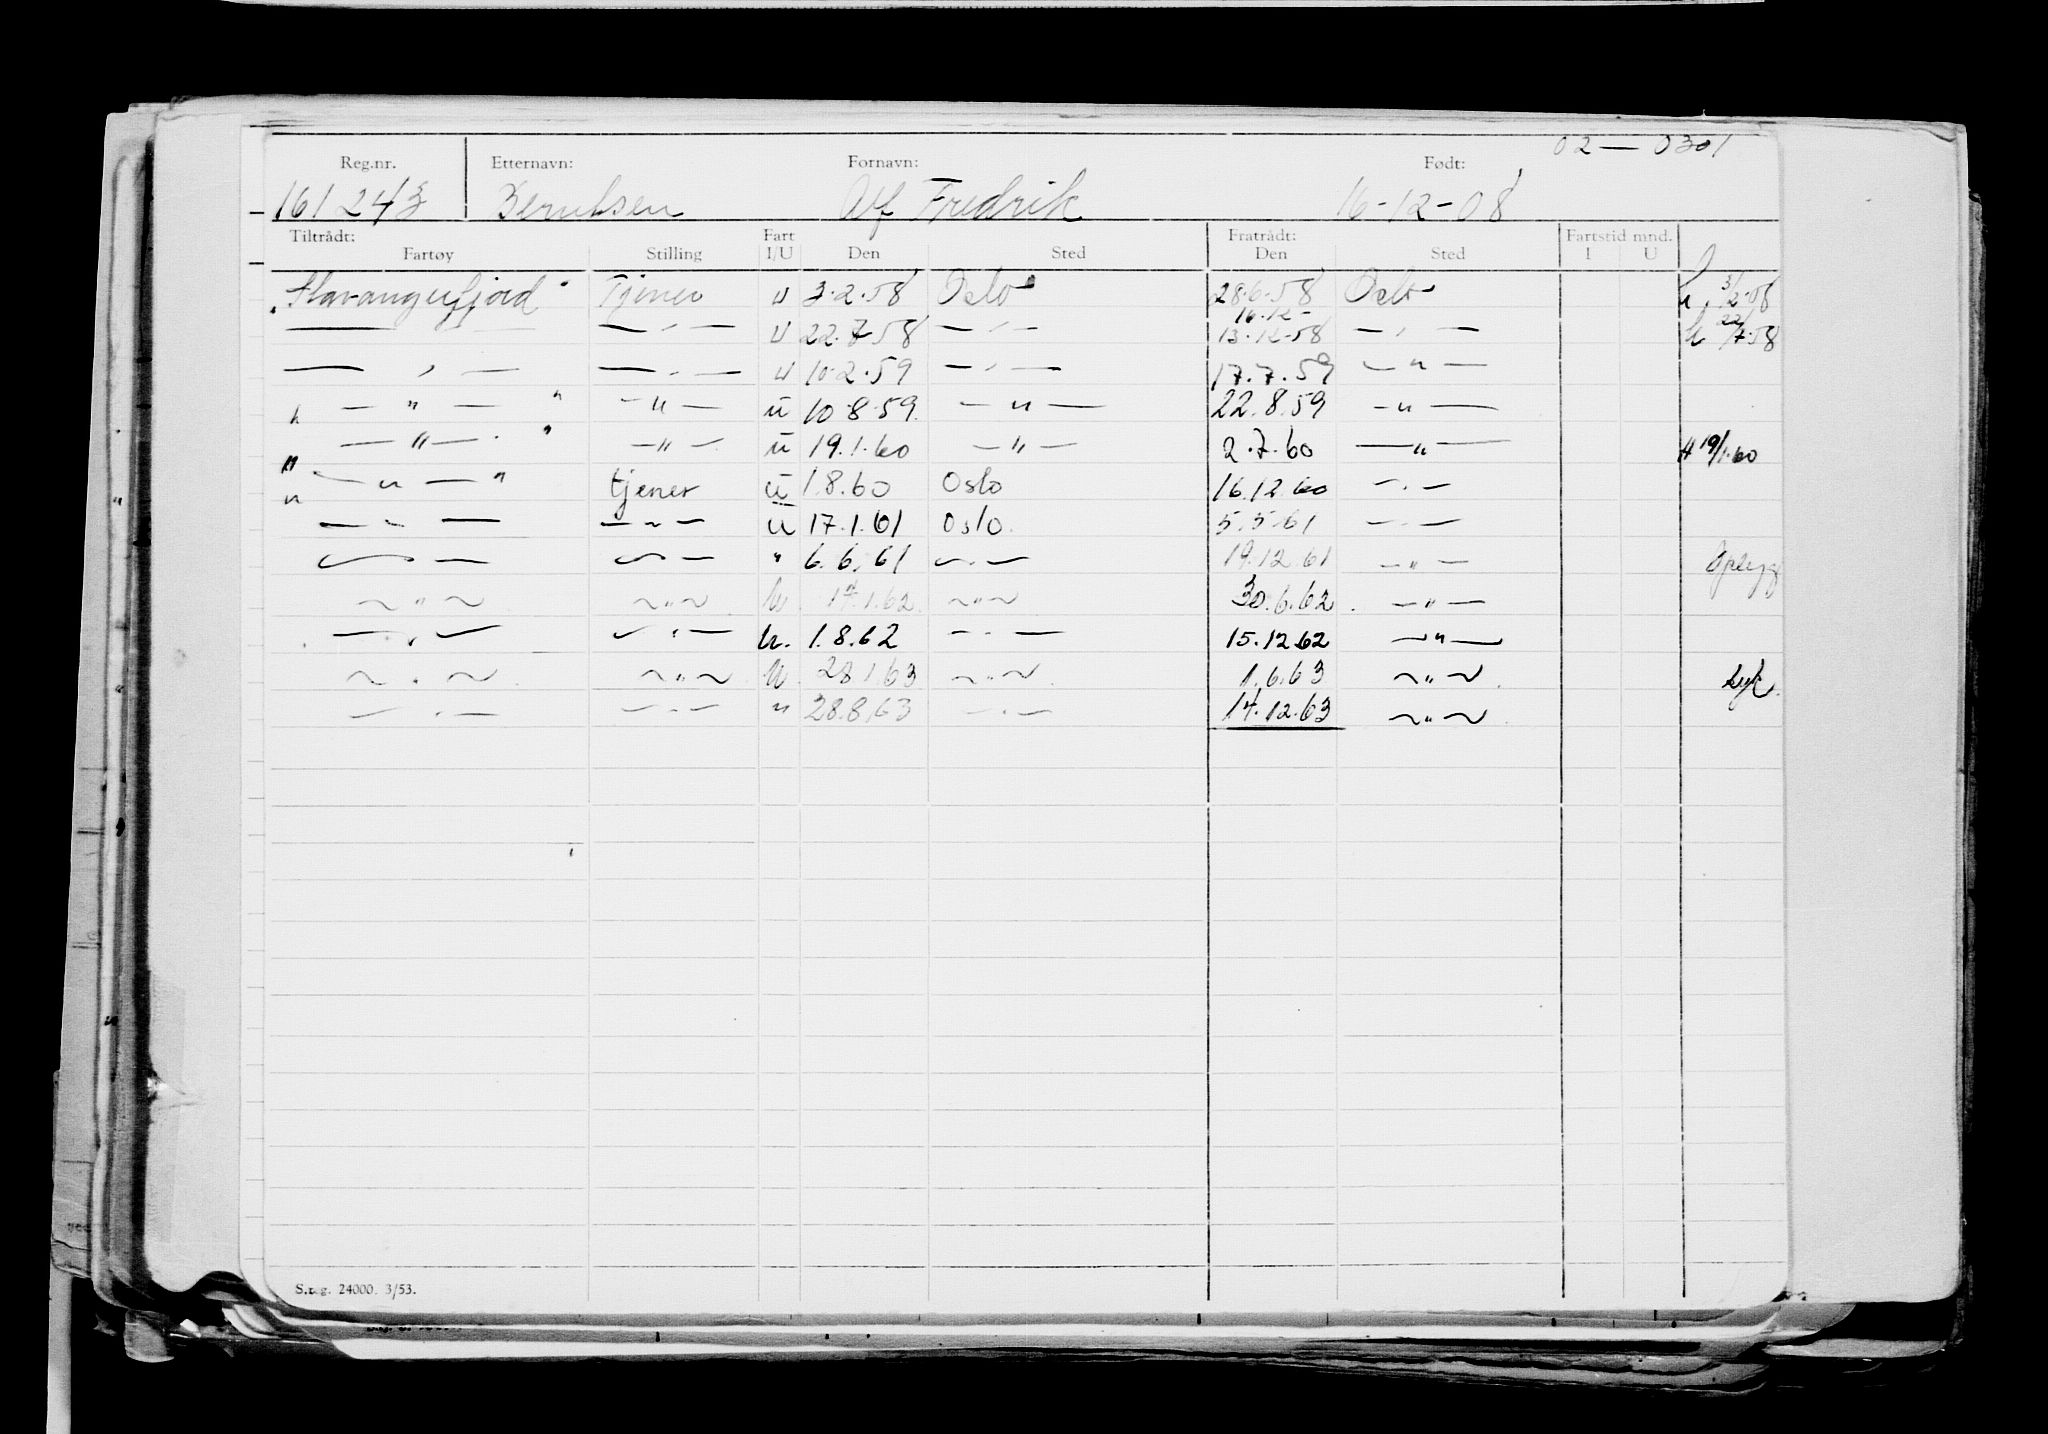 02 — 0301
Reg.nr. Etternavn: Fornavn: Født:
161243 Berntsen Alf Fredrik 16-12-08
Tiltrådt: Fart Fratrådt: Fartstid mnd.
Fartøy Stilling I/U Den Sted Den Sted I U
"Stavangerfjord" Tjener U 3.2.58 Oslo 28.6.58 Oslo
16.12-
— — — " — U 22.7.58 — " — 13.12.58 — " — 22/7.58
— " — — " — U 10.2.59 — " — 17.7.59 — " —
" — " — " — " — U 10.8.59. — " — 22.8.59 — " —
" — " — " — " — U 19.1.60 — " — 2.7.60 — " — H 19/1.60
" — " — " tjener U 1.8.60 Oslo 16.12.60 — " —
— " — — " — U 17.1.61 Oslo. 5.5.61 — " —
— " — — " — " 6.6.61 — " — 19.12.61 — " —
— " — — " — U. 17.1.62. — " — 30.6.62. — " —
— " — — " — U. 1.8.62 — " — 15.12.62 — " —
— " — — " — U. 28.1.63 — " — 1.6.63 — " — syk.
— " — — " — " 28.8.63 — " — 14.12.63 — " —
S.r.g. 24000. 3/53.